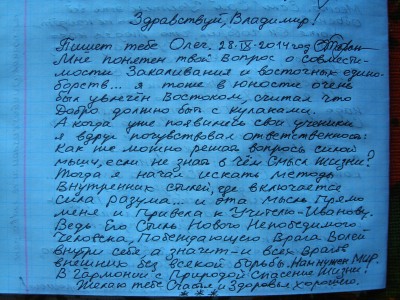 Здравствуй, Владимир!
Пишет тебе Олег. 28-IX-2014 год
Мне понятен твой вопрос о совмести-
мости Закаливания и восточных едино-
борств... я тоже в юности очень
был увлечён Востоком, считал что
Добро должно быть с кулаками.
А когда уже появились свои ученики
я вдруг почувствовал ответственность:
Как же можно решать вопросы силой
мышц, если не знать в чём Смысл Жизни?
Тогда я начал искать методы
Внутренних стилей, где включается
Сила разума... и эта мысль прямо
меня и привела к Учителю-Иванову.
Ведь Его Стиль Нового Непобедимого
Человека, Побеждающего Врага Волей
внутри себя, а значит-и всех Врагов
внешних без всякой борьбы. Нам нужен Мир.
В Гармонии с Природой-Спасение Жизни!
Желаю тебе Счастья и Здоровья хорошего.